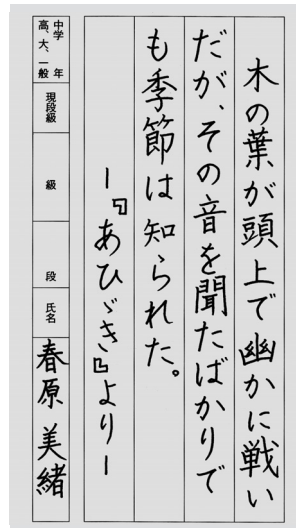 木の葉が頭上で幽かに戦い
だが、その音を聞たばかりで
も季節は知られた。
ー『あひゞき』よりー
中学　年
高、大、一般
現段級
級
段
氏名
春原 美緒